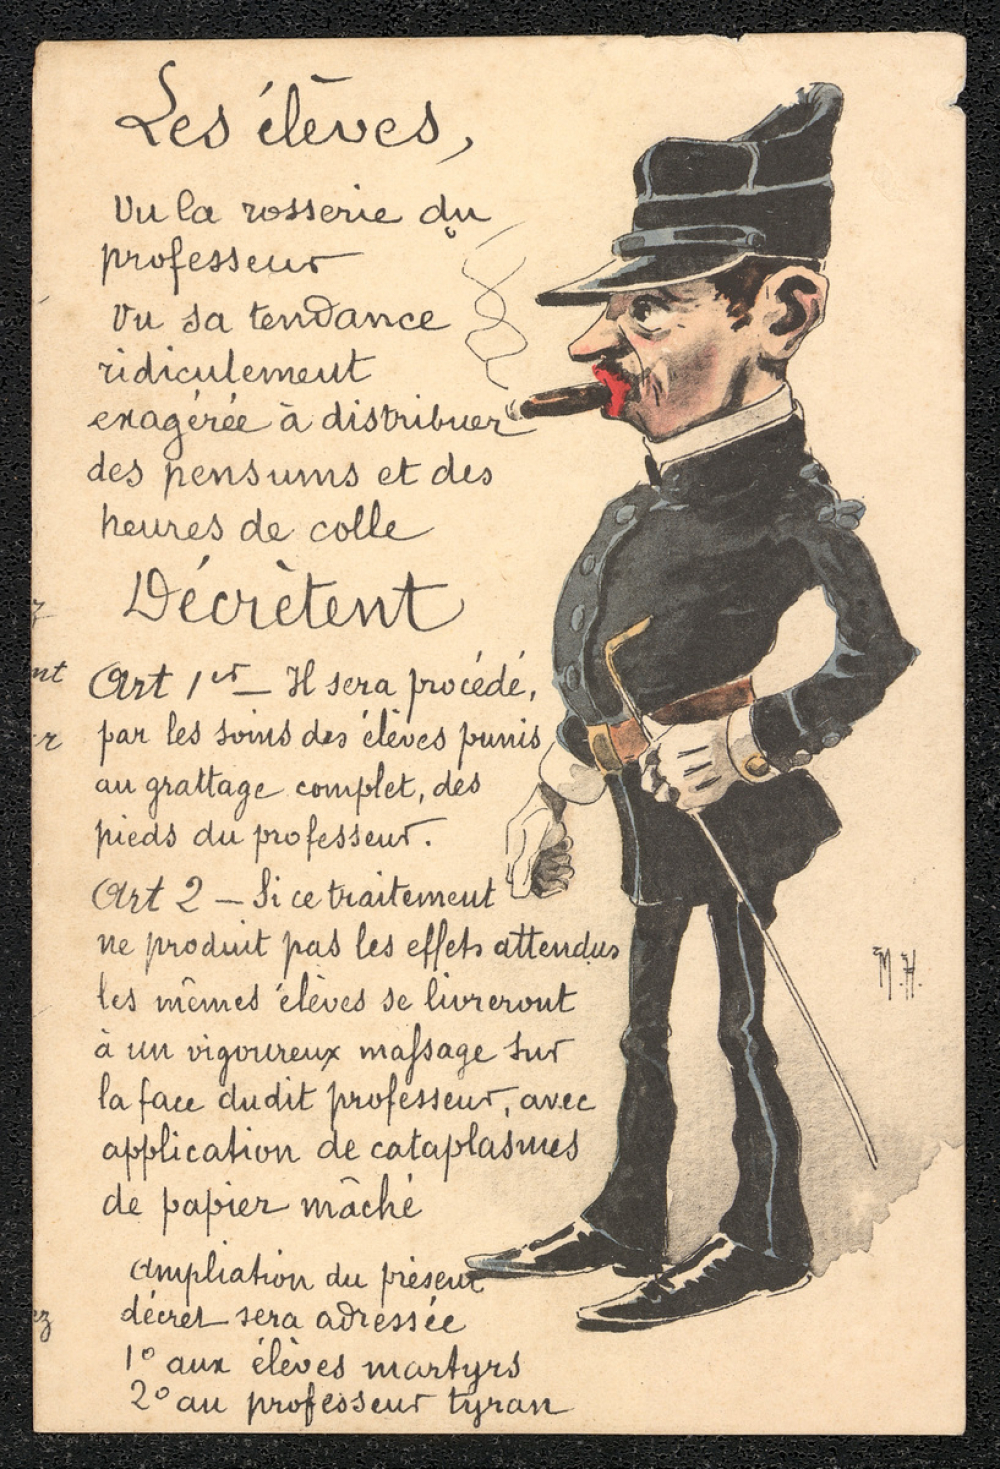 Les élèves,
Vu la rosserie du
professeur
Vu sa tendance
ridiculement
exagérée à distribuer
des pensums et des
heures de colle
Décrètent
Art 1er — Il sera procédé,
par les soins des élèves punis,
au grattage complet, des
pieds du professeur.
Art 2 — Si ce traitement
ne produit pas les effets attendus
les mêmes élèves se livreront
à un vigoureux massage sur
la face dudit professeur, avec
application de cataplasmes
de papier mâché
Ampliation du présent
décret sera adressée
1° aux élèves martyrs
2° au professeur tyran
M.H.
nt
r
ez